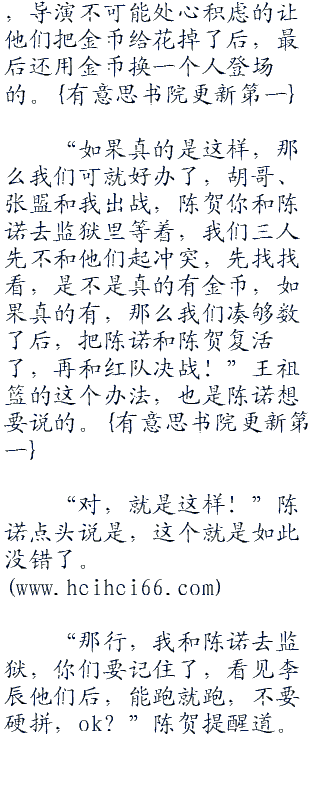 ，导演不可能处心积虑的让
他们把金币给花掉了后，最
后还用金币换一个人登场
的。{有意思书院更新第一}
“如果真的是这样，那
么我们可就好办了，胡哥、
张盟和我出战，陈贺你和陈
诺去监狱里等着，我们三人
先不和他们起冲突，先找找
看，是不是真的有金币，如
果真的有，那么我们凑够数
了后，把陈诺和陈贺复活
了，再和红队决战！”王祖
篮的这个办法，也是陈诺想
要说的。{有意思书院更新第
一}
“对，就是这样！”陈
诺点头说是，这个就是如此
没错了。
(www.hcihci66.com)
“那行，我和陈诺去监
狱，你们要记住了，看见李
辰他们后，能跑就跑，不要
硬拼，ok？”陈贺提醒道。